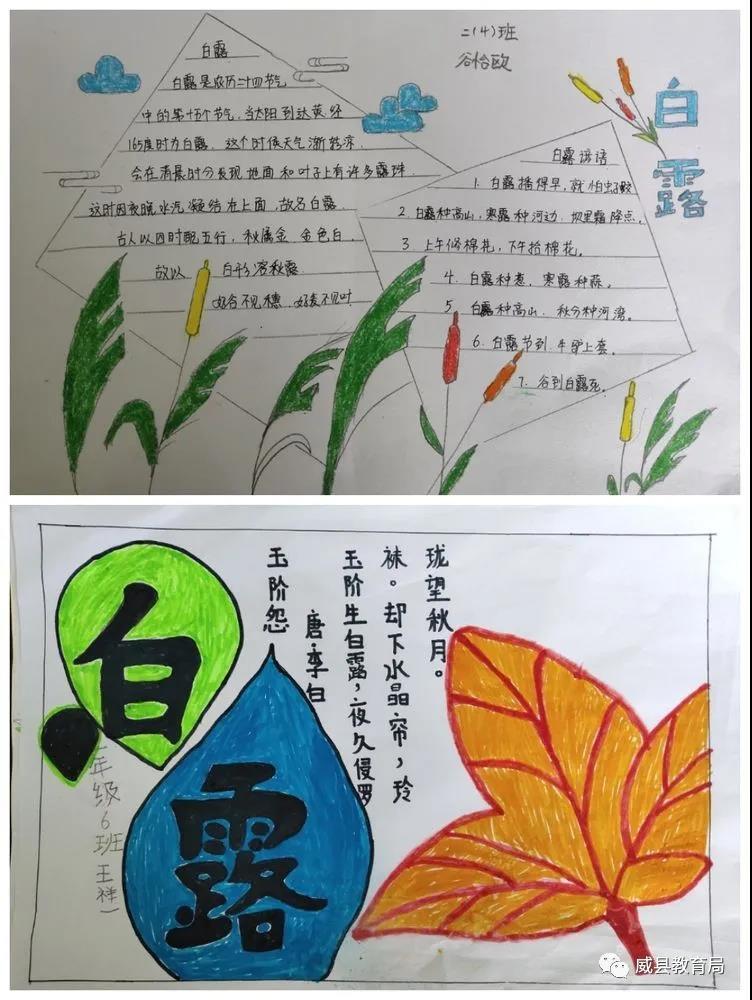 二(4)班
谷怡欧
白露
白露
白露是农历二十四节气
中的第十五个节气，当太阳到达黄经
165度时为白露．这个时候天气渐转凉．
会在清晨时分发现地面和叶子上有许多露珠．
这时因夜晚水汽凝结在上面，故名白露．
古人以四时配五行，秋属金．金色白．
故以 白形容秋露．
好谷不见穗 好麦不见叶
白露谚语
1．白露播得早，就怕虫子咬
2．白露种高山，寒露种河边．坝里霜降点．
3．上午修棉花，下午拾棉花。
4．白露种葱．寒露种蒜。
5．白露种高山．秋分种河湾。
6．白露节到．牛驴上套。
7．谷到白露死。
白露
年级6班王祥一
玉阶怨
唐·李白
玉阶生白露，夜久侵罗
袜。却下水晶帘，玲
珑望秋月。
威县教育局